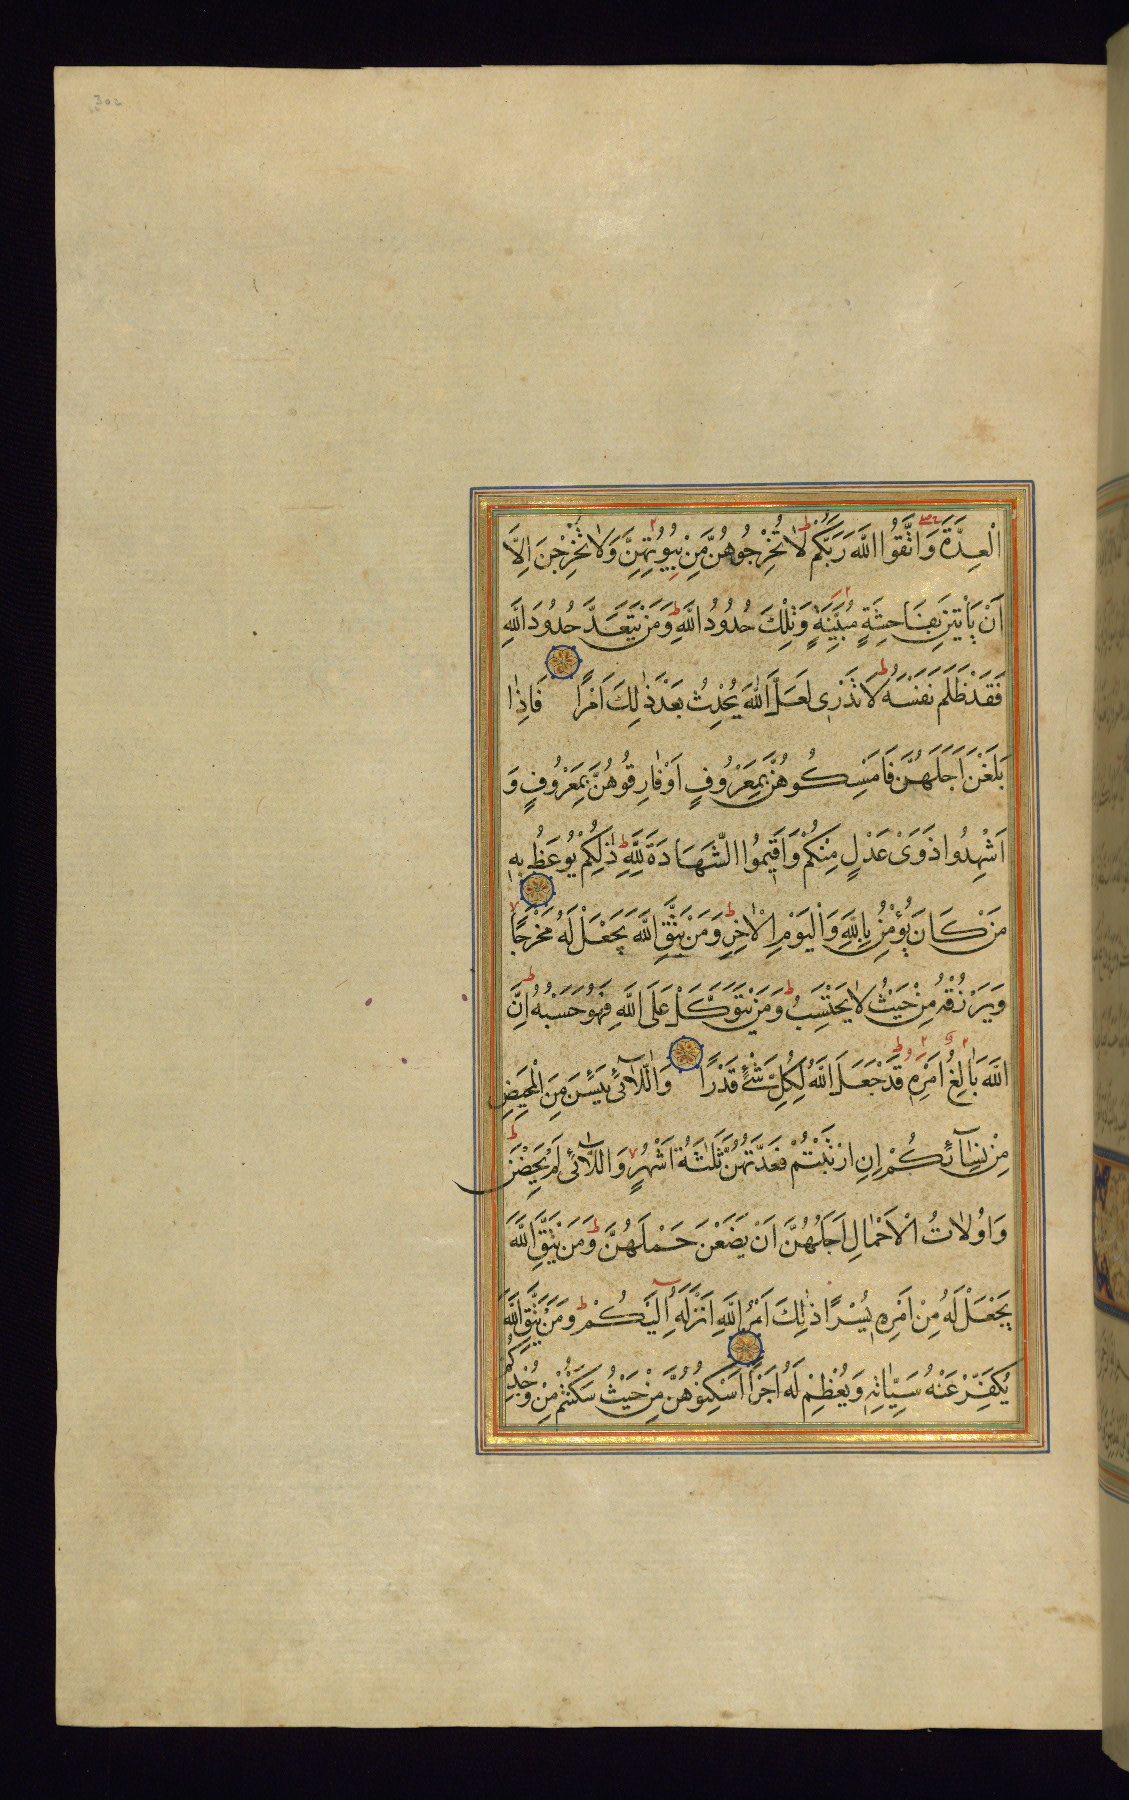 302
الْعِدَّةَ وَاتَّقُوا اللَّهَ رَبَّكُمْ لَا تُخْرِجُوهُنَّ مِنْ بُيُوتِهِنَّ وَلَا تَخْرُجْنَ اِلَّا
اَنْ يَاْتِينَ بِفَاحِشَةٍ مُبَيِّنَةٍ وَتِلْكَ حُدُودُ اللَّهِ ط وَمَنْ يَتَعَدَّ حُدُودَ اللَّهِ
فَقَدْ ظَلَمَ نَفْسَهُ ط لَا تَدْرِى لَعَلَّ اللَّهَ يُحْدِثُ بَعْدَ ذٰلِكَ اَمْرًا فَاِذٰا
بَلَغْنَ اَجَلَهُنَّ فَاَمْسِكُوهُنَّ بِمَعْرُوفٍ اَوْ فٰارِقُوهُنَّ بِمَعْرُوفٍ وَ
اَشْهِدُوا ذَوَىْ عَدْلٍ مِنْكُمْ وَاَقِيمُوا الشَّهَادَةَ لِلَّهِ ط ذٰلِكُمْ يُوعَظُ بِهِ
مَنْ كَانَ يُؤْمِنُ بِاللَّهِ وَالْيَوْمِ الْاٰخِرِ ط وَمَنْ يَتَّقِ اللَّهَ يَجْعَلْ لَهُ مَخْرَجًا
وَيَرْزُقْهُ مِنْ حَيْثُ لٰا يَحْتَسِبُ ط وَمَنْ يَتَوَكَّلْ عَلَى اللَّهِ فَهُوَ حَسْبُهُ ط اِنَّ
اللَّهَ بَالِغُ اَمْرِهِ ط قَدْ جَعَلَ اللَّهُ لِكُلِّ شَىْءٍ قَدْرًا وَاللّٰٓائِى يَئِسْنَ مِنَ الْمَحِيضِ
مِنْ نِسٰٓائِكُمْ اِنِ ارْتَبْتُمْ فَعِدَّتُهُنَّ ثَلٰثَةُ اَشْهُرٍ وَاللّٰٓائِى لَمْ يَحِضْنَ ط
وَاُولٰاتُ الْاَحْمٰالِ اَجَلُهُنَّ اَنْ يَضَعْنَ حَمْلَهُنَّ ط وَمَنْ يَتَّقِ اللَّهَ
يَجْعَلْ لَهُ مِنْ اَمْرِهِ يُسْرًا ذٰلِكَ اَمْرُ اللَّهِ اَنْزَلَهُ اِلَيْكُمْ ط وَمَنْ يَتَّقِ اللَّهَ
يُكَفِّرْ عَنْهُ سَيِّـَٔاتِهِ وَيُعْظِمْ لَهُ اَجْرًا اَسْكِنُوهُنَّ مِنْ حَيْثُ سَكَنْتُمْ مِنْ وُجْدِكُمْ